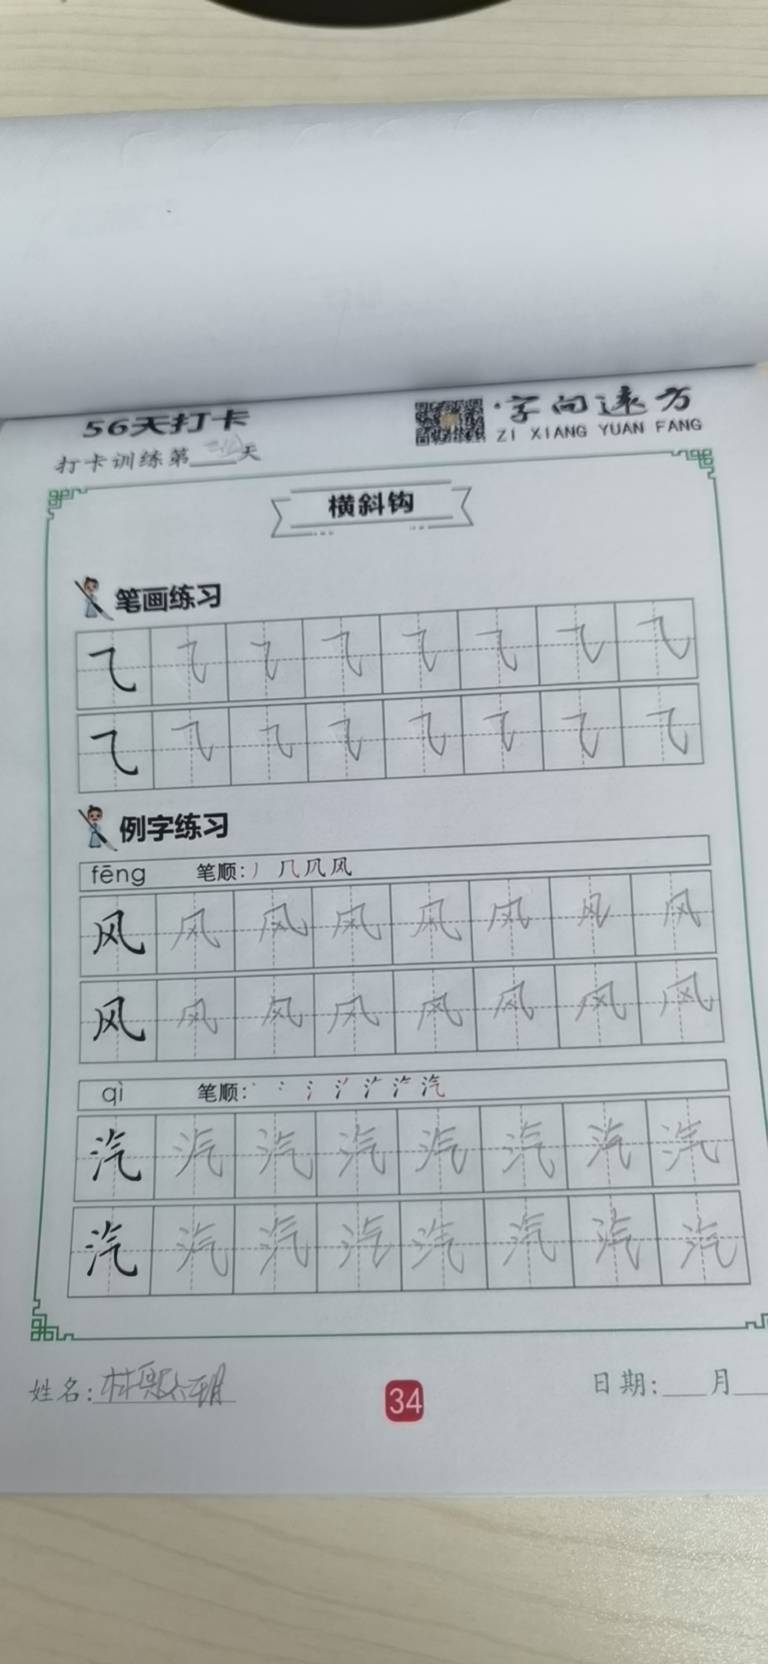 56天打卡
字向遠方
ZI XIANG YUAN FANG
打卡训练第___天
横斜钩
笔画练习
⺄ ⺄ ⺄ ⺄ ⺄ ⺄ ⺄ ⺄
⺄ ⺄ ⺄ ⺄ ⺄ ⺄ ⺄ ⺄
例字练习
fēng 笔顺:丿 几 凤 风
风 风 风 风 风 风 风 风
风 风 风 风 风 风 风 风
qì 笔顺:
汽 汽 汽 汽 汽 汽 汽 汽
汽 汽 汽 汽 汽 汽 汽 汽
姓名:林
34
日期:___月___